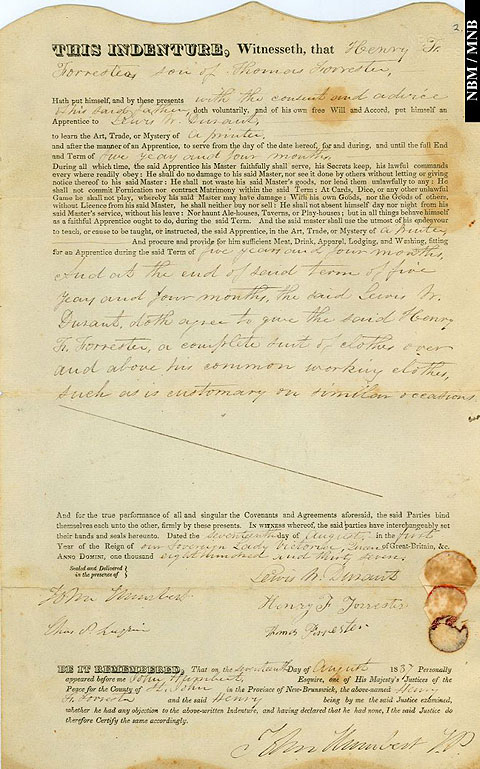 2
NBM / MNB
THIS INDENTURE, Witnesseth, that Henry F.
Forrester, son of Thomas Forrester,
Hath put himself, and by these presents with the consent and advice
of his said Father, doth voluntarily, and of his own free Will and Accord, put himself an
Apprentice to Lewis W. Durant,
to learn the Art, Trade, or Mystery of a printer,
and after the manner of an Apprentice, to serve from the day of the date hereof, for and during, and until the full End
and Term of five years and four months,
During all which time, the said Apprentice his Master faithfully shall serve, his Secrets keep, his lawful commands
every where readily obey: He shall do no damage to his said Master, nor see it done by others without letting or giving
notice thereof to his said Master: He shall not waste his said Master's goods, nor lend them unlawfully to any: He
shall not commit Fornication nor contract Matrimony within the said Term: At Cards, Dice, or any other unlawful
Game he shall not play, whereby his said Master may have damage: With his own Goods, nor the Goods of others,
without Licence from his said Master, he shall neither buy nor sell: He shall not absent himself day nor night from his
said Master's service, without his leave: Nor haunt Ale-houses, Taverns, or Play-houses; but in all things behave himself
as a faithful Apprentice ought to do, during the said Term. And the said master shall use the utmost of his endeavour
to teach, or cause to be taught, or instructed, the said Apprentice, in the Art, Trade, or Mystery of a printer
And procure and provide for him sufficient Meat, Drink, Apparel, Lodging, and Washing, fitting
for an Apprentice during the said Term of five years and four months,
And at the end of said term of five
years and four months, the said Lewis W.
Durant, doth agree to give the said Henry
F. Forrester, a complete suit of clothes over
and above his common working clothes,
such as is customary on similar occasions
And for the true performance of all and singular the Covenants and Agreements aforesaid, the said Parties bind
themselves each unto the other, firmly by these presents. In witness whereof, the said parties have interchangeably set
their hands and seals hereunto. Dated the seventeenth day of August, in the first
Year of the Reign of our Sovereign Lady Victoria, Queen of Great-Britain, &c.
Anno Domini, one thousand eight hundred and thirty seven.
Sealed and Delivered
in the presence of
Lewis W. Durant
John Humbert
Henry F Forrester
Thomas Forrester
BE IT REMEMBERED, That on the seventeenth Day of August 1837 Personally
appeared before me John Humbert Esquire, one of His Majesty's Justices of the
Peace for the County of St. John in the Province of New-Brunswick, the above-named Henry
F. Forrester and the said Henry being by me the said Justice examined,
whether he had any objection to the above-written Indenture, and having declared that he had none, I the said Justice do
therefore Certify the same accordingly.
John Humbert J.P.